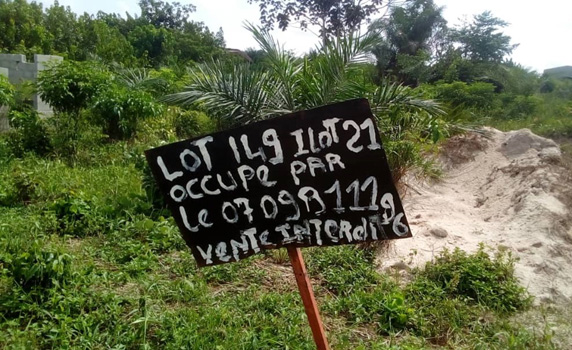 LOT 149 ILOT 21
OCCUPE PAR
LE 07 09
VENTE INTERDIT